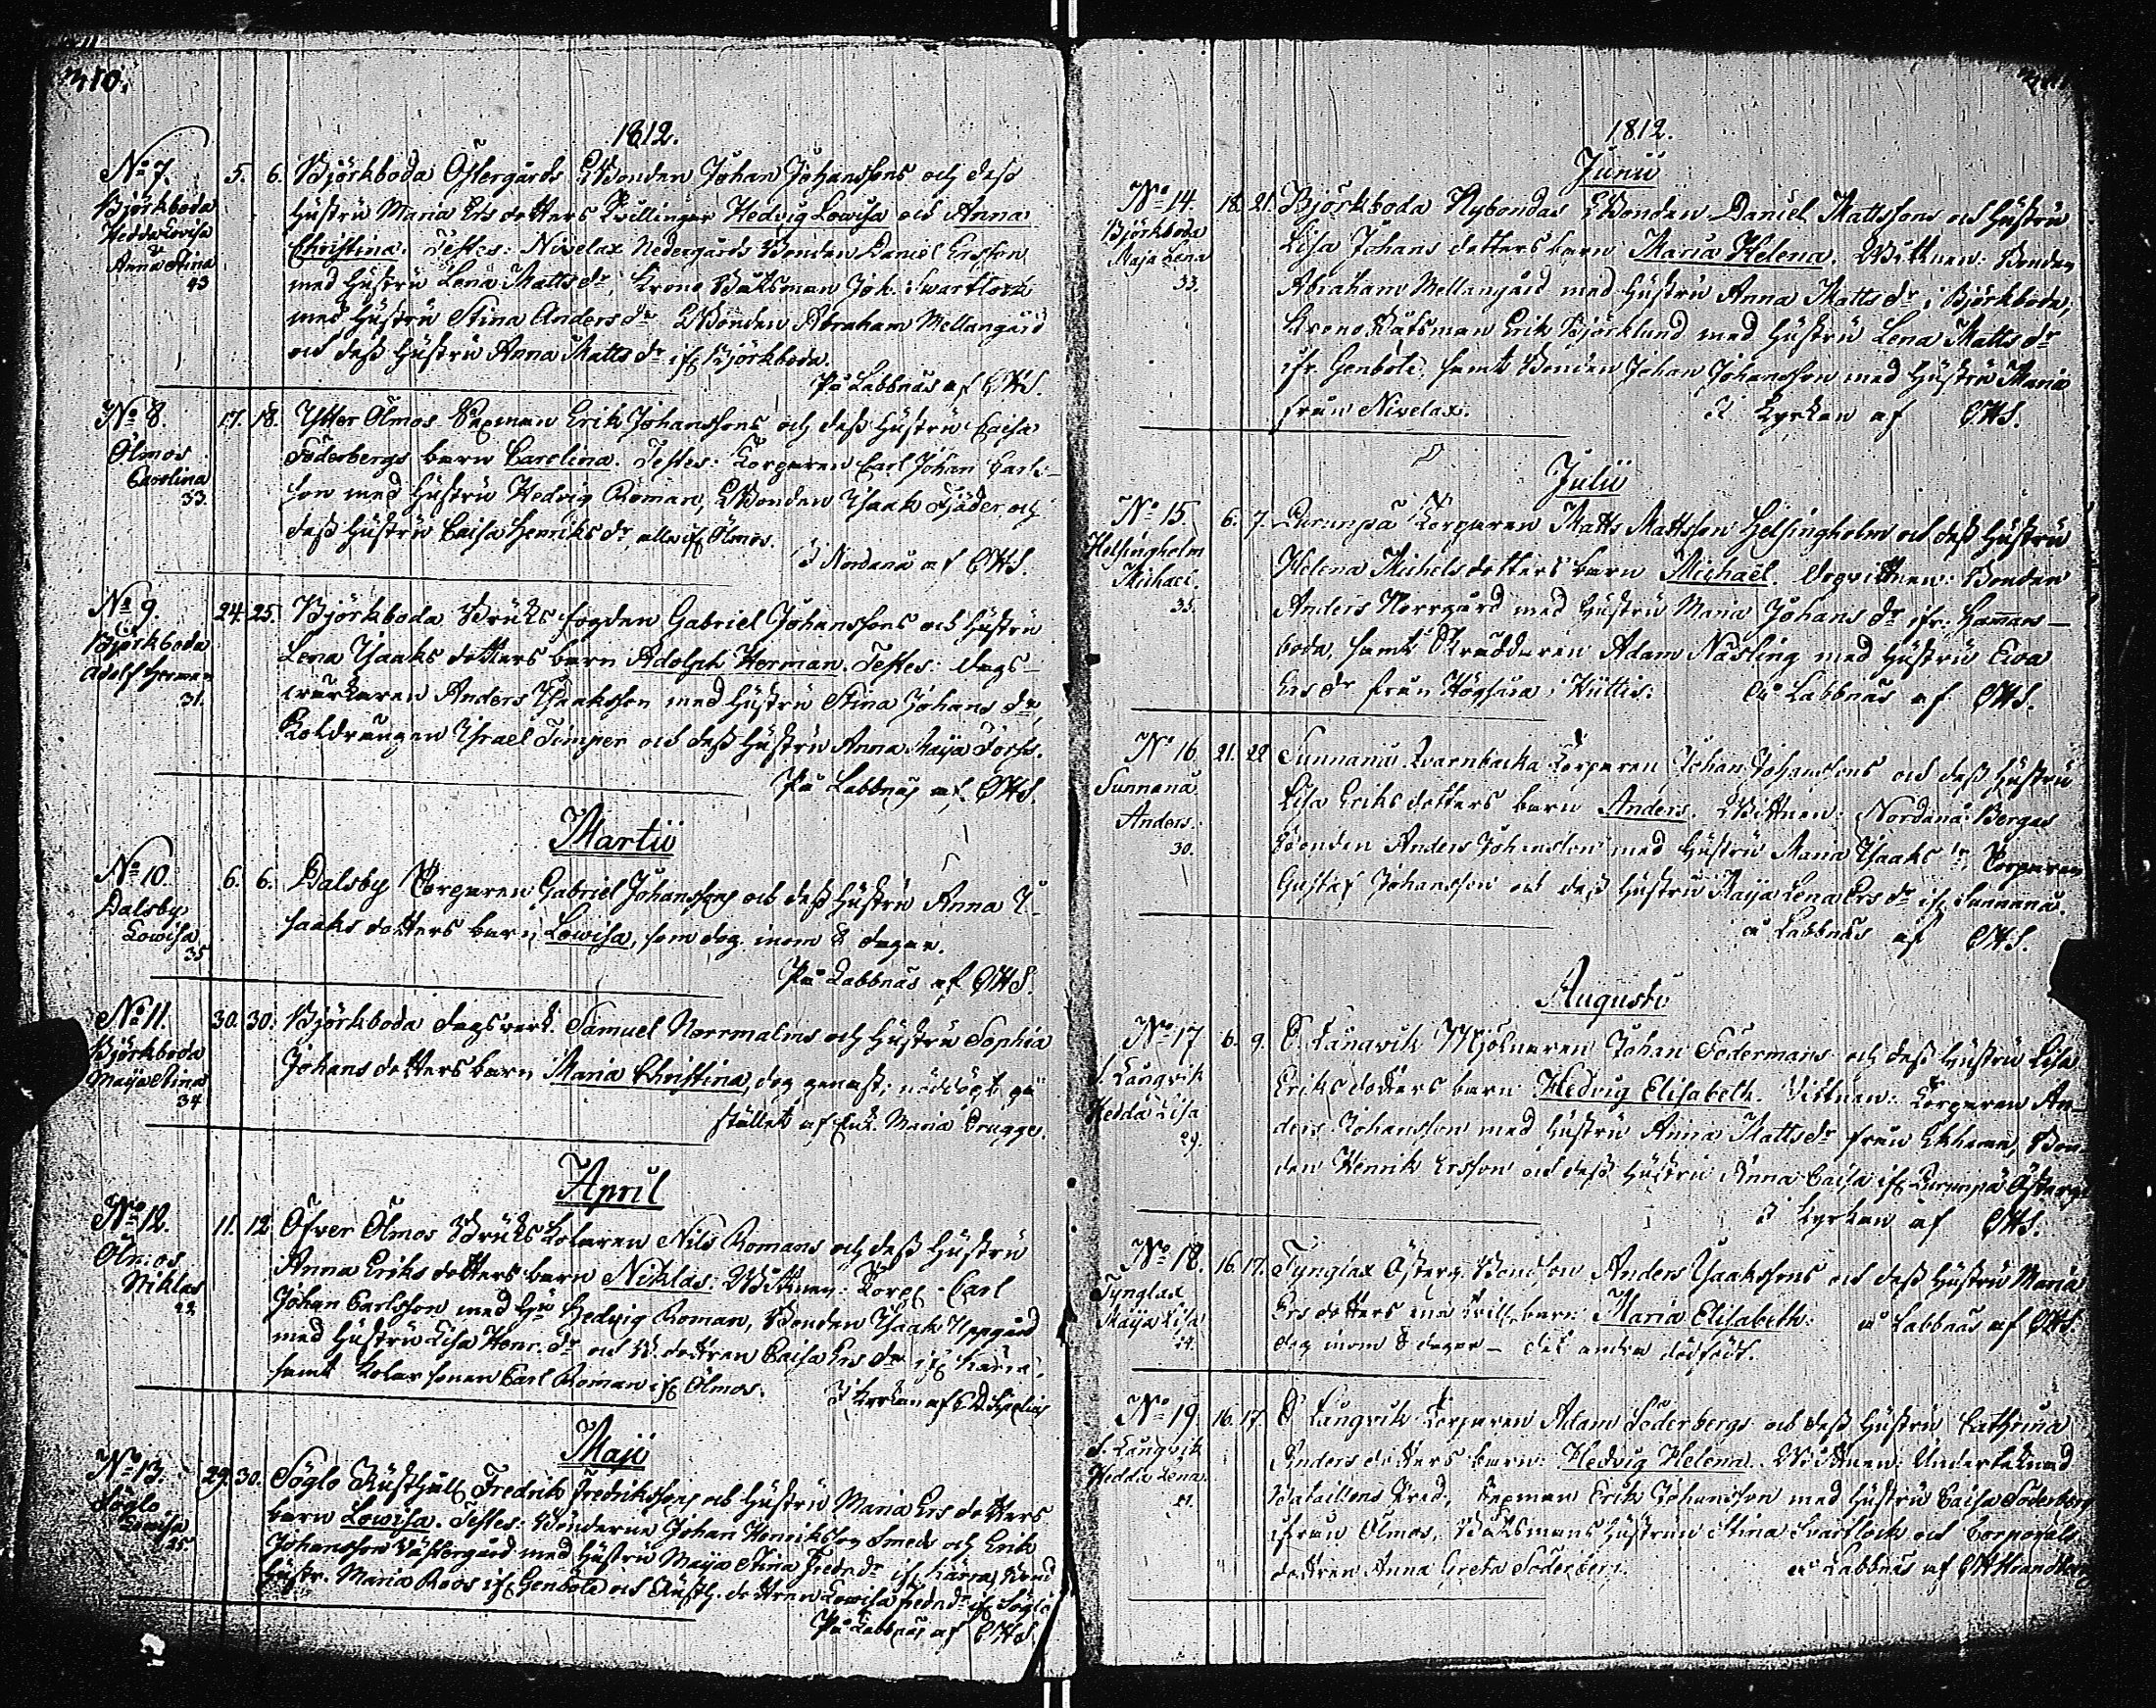 310.
1812.
No 7. 5. 6. Björkboda Östergårds Bonden Johan Johanssons och dess
Björkboda
Hedda Lovisa
&
Anna Stina
43
hustru Maria Ers dotters Tvillingar Hedvig Lowisa och Anna
Christina. Testes: Nivelax Nedergårds Bonden Daniel Ersson
med hustru Lena Matts dr, Krono Båtsman Joh. Swartlock
med hustru Stina Anders dr Bonden Abraham Mellangård
och dess hustru Anna Matts dr ifr Björkboda.
På Labbnäs af
No 8. 17. 18. Ytter Ölmos Erik Johanssons och dess hustru Caisa
Ölmos
Carolina
33.
Söderbergs barn Carolina. Testes: Torparen Carl Johan Carls-
son med hustru Hedvig Roman, Bonden Isaak och
dess hustru Caisa Henriks dr, alla ifr Ölmos.
i Nordanå af
No 9. 24. 25. Björkboda Bruks fogden Gabriel Johanssons och hustru
Björkboda
Adolf Herman
31.
Lena Isaaks dotters barn Adolph Herman. Testes: Dags-
verkaren Anders Isaksson med hustru Stina Johans dr,
Koldrängen Israel Timper och dess hustru Anna Maja Forss.
På Labbnäs af
Martii
No 10. 6. 6. Dalsby Torparen Gabriel Johanssons och dess hustru Anna I-
Dalsby
Lowisa
35
saaks dotters barn Lowisa, som dog inom 8 dagar.
På Labbnäs af
No 11. 30. 30. Björkboda dagsverk. Samuel Norrmalms och hustru Sophia
Björkboda
Maja Stina
34
Johans dotters barn Maria Christina, dog genast; nöddöpt på
stället af Enk. Maria Brugge.
April
No 12. 11. 12. Öfver Ölmos Bruks Kolaren Nils Romans och dess hustru
Ölmos
Niklas
Anna Eriks dotters barn Niklas. Wittnen: Torp. Carl
Johan Carlsson med Hu Hedvig Roman, Bonden Isaak Uppgård
med hustru Lisa Henr. dr och B. dottren Caisa Ers dr ifr Kärra,
samt Kolar sonen Carl Roman ifr Ölmos. I Kyrkan af
Maji
No 13. 29. 30. Söglo Rusthåll. Fredrik Fredrikssons och hustru Maria Ers dotters
Söglo
Lowisa
25
barn Lowisa. Testes: Bönderne Johan Henriksson Smeds och Erik
Johansson Västergård med hustru Maja Stina Fredr. dr ifr Kärra, Bond
hustr. Maria Roos ifr Genböle och Rusth. dottren Lowisa Fredr dr ifr Söglo
På Labbnäs af
1812.
Junii
No 14. 18. 21. Björkboda Nybondas Bonden Daniel Mattssons och hustru
Björkboda
Maja Lena
33.
Lisa Johans dotters barn Maria Helena. Wittnen: Bonden
Abraham Mellangård med hustru Anna Matts dr i Björkboda,
Krono Båtsman Erik Björklund med hustru Lena Matts dr
ifr. Genböle, samt Bonden Johan Johansson med hustru Maria
från Nivelax. I Kyrkan af
Julii
No 15. 6. 7. Torparen Matts Mattsson Helsingholm och dess hustru
Helsingholm
Michael
35.
Helena Michels dotters barn Michaël. Dopvittnen: Bonden
Anders Norrgård med hustru Maria Johans dr ifr. Hammars-
boda, samt Skräddaren Adam Näsling med hustru Eva
Ers dr från Högsåra i Hiittis. På Labbnäs af
No 16. 21. 22. Sunnanå Qvarnbacka Torparen Johan Johanssons och dess hustru
Sunnanå
Anders.
30.
Lisa Eriks dotters barn Anders. Wittnen: Nordanå Bergas
Bonden Anders Johansson med hustru Maria Isaaks dr, Torparen
Gustaf Johansson och dess hustru Maja Lena Ers dr ifr Sunnanå.
å Labbnäs af
Augusti
No 17. 6. 9. S. Långvik Mjölnaren Johan Södermans och dess hustru Lisa
S. Långvik
Hedda Lisa
29.
Eriks dotters barn Hedvig Elisabeth. Vittnen: Torparen An-
ders Johansson med hustru Anna Matts dr från Ekhamn, Bon-
den Henrik Ersson och dess hustru Anna Caisa ifr
I Kyrkan af
No 18. 16. 17. Tynglax Österg. Bondson Anders Isaakssons och dess hustru Maria
Tynglax
Maja Lisa
Ers dotters ena Tvill. barn: Maria Elisabeth. å Labbnäs af
dog inom 8 dagar - det andra dödfödt.
No 19. 16. 17. S. Långvik Torparen Adam Söderbergs och dess hustru Cathrina
S. Långvik
Hedda Lena.
Anders dotters barn: Hedvig Helena. Wittnen: Underteknad
Bataillons Pred., Erik Johansson med hustru Caisa Söderberg
ifrån Ölmos, Båtsmans hustrun Stina Svartlock och Corporals
dottren Anna Greta Söderberg. å Labbnäs af